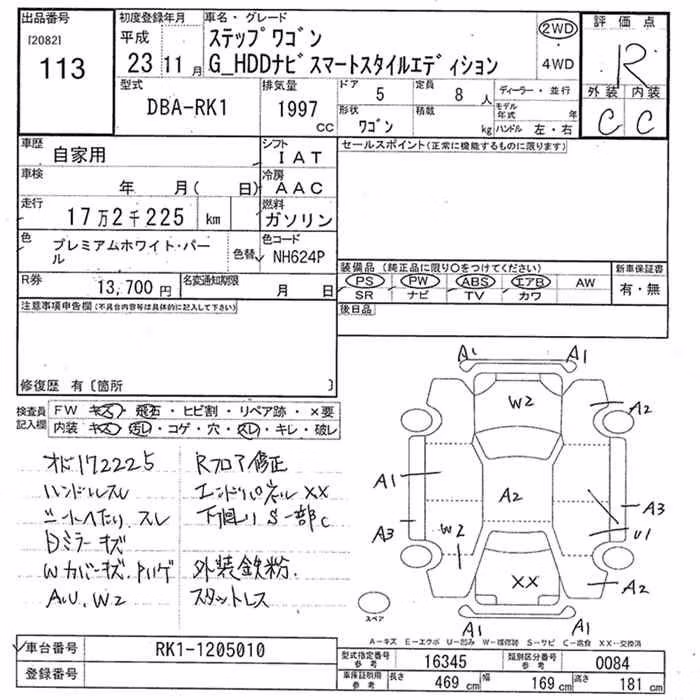 出品番号
[2082]
113
初度登録年月
平成
23 11 月
車名・グレード
ステップワゴン
G_HDDナビスマートスタイルエディション
2WD
4WD
評価点
R
外装 内装
C C
型式
DBA-RK1
排気量
1997 CC
ドア
5
定員
8 人
形状
ワゴン
積載
kg
ディーラー・並行
モデル年式 年
ハンドル 左・右
車歴
自家用
シフト
IAT
車検
年 月( 日)
冷房
AAC
走行
17万2千225 km
燃料
ガソリン
色
プレミアムホワイト・パール
色替
色コード
NH624P
R券
13,700 円
名変通知期限
月 日
セールスポイント(正常に機能するものに限ります)
装備品(純正品に限り〇をつけてください)
PS PW ABS エアB AW
SR ナビ TV カワ
新車保証書
有・無
後日品
注意事項申告欄(不具合内容等は具体的に記入して下さい)
修復歴 有〔箇所 〕
検査員記入欄
FW キズ・飛石・ヒビ割・リペア跡・×要
内装 キズ・汚レ・コゲ・穴・スレ・キレ・破レ
オド172225
ハンドルスレ
シートヘたり、スレ
Dミラーキズ
Wカバーキズ、Pハゲ
A.U.W2
Rフロア修正
エンドパネルXX
下回りS一部C
外装鉄粉.
スタットレス
A1 A1
W2
A2
A1
A2
A3
W2
A3
U1
XX
A2
A1 A1
スペア
A-キズ E-エクボ U-凹み W-補修跡 S-サビ C-腐食 XX-交換済
車台番号
RK1-1205010
登録番号
型式指定番号 参考
16345
類別区分番号 参考
0084
車庫証明用 参考
長さ 469 cm 幅 169 cm 高さ 181 cm